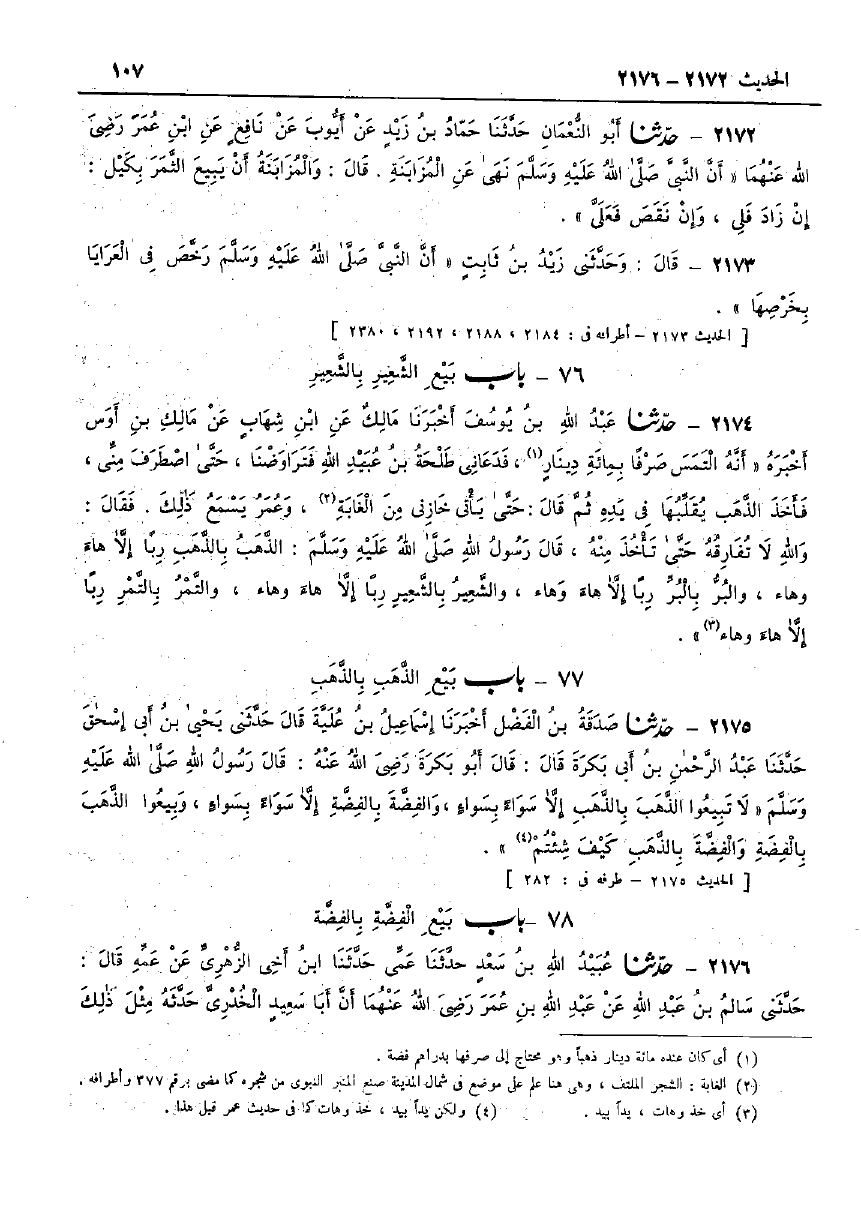 الحديث ٢١٧٢ – ٢١٧٦
١٠٧
٢١٧٢ – حدّثنا أَبُو النُّعْمَانِ حَدَّثَنَا حَمَّادُ بنُ زَيْدٍ عَنْ أَيُّوبَ عَنْ نَافِعٍ عَنِ ابْنِ عُمَرَ رَضِيَ
الله عَنْهُمَا « أَنَّ النَّبِيَّ صَلَّى اللهُ عَلَيْهِ وَسَلَّمَ نَهَىٰ عَنِ الْمُزَابَنَةِ . قَالَ : وَالْمُزَابَنَةُ أَنْ يَبِيعَ الثَّمَرَ بِكَيْل :
إِنْ زَادَ فَلِي ، وَإِنْ نَقَصَ فَعَلَيَّ » .
٢١٧٣ – قَالَ : وَحَدَّثَنِي زَيْدُ بنُ ثَابِتٍ « أَنَّ النَّبِيَّ صَلَّى اللهُ عَلَيْهِ وَسَلَّمَ رَخَّصَ فِي الْعَرَايَا
بِخَرْصِهَا » .
[ الحديث ٢١٧٣ – أطرافه فى : ٢١٨٤ ، ٢١٨٨ ، ٢١٩٢ ، ٢٣٨٠ ]
٧٦ – باب بَيْعِ الشَّعِيرِ بِالشَّعِيرِ
٢١٧٤ – حدّثنا عَبْدُ اللهِ بنُ يُوسُفَ أَخْبَرَنَا مَالِكٌ عَنِ ابْنِ شِهَابٍ عَنْ مَالِكِ بنِ أَوْس
أَخْبَرَهُ « أَنَّهُ الْتَمَسَ صَرْفًا بِمِائَةِ دِينَارٍ(١) ، فَدَعَانِي طَلْحَةُ بنُ عُبَيْدِ اللهِ فَتَرَاوَضْنَا ، حَتَّى اصْطَرَفَ مِنِّي ،
فَأَخَذَ الذَّهَب يُقَلِّبُهَا فِي يَدِهِ ثُمَّ قَالَ : حَتَّى يَأْتِيَ خَازِنِي مِنَ الْغَابَةِ(٢) ، وَعُمَرُ يَسْمَعُ ذَٰلِكَ . فَقَالَ :
وَاللهِ لَا تُفَارِقُهُ حَتَّى تَأْخُذَ مِنْهُ ، قَالَ رَسُولُ اللهِ صَلَّى اللهُ عَلَيْهِ وَسَلَّمَ : الذَّهَبُ بِالذَّهَبِ رِبًا إِلَّا هاءَ
وهاء ، والبُرُّ بِالْبُرِّ رِبًا إِلَّا هاءَ وَهاء ، والشَّعِيرُ بِالشَّعِيرِ رِبًا إِلَّا هاءَ وهاء ، والتَّمْرُ بِالتَّمْرِ رِبًا
إِلَّا هاءَ وهاء(٣)» .
٧٧ – باب بَيْعِ الذَّهَبِ بِالذَّهَبِ
٢١٧٥ – حدّثنا صَدَقَةُ بنُ الْفَضْلِ أَخْبَرَنَا إِسْمَاعِيلُ بنُ عُلَيَّةَ قَالَ حَدَّثَنِي يَحْيَىٰ بنُ أَبِي إِسْحٰقَ
حَدَّثَنَا عَبْدُ الرَّحْمٰنِ بنُ أَبِي بَكْرَةَ قَالَ : قَالَ أَبُو بَكْرَةَ رَضِيَ اللهُ عَنْهُ : قَالَ رَسُولُ اللهِ صَلَّى الله عَلَيْهِ
وَسَلَّمَ « لَا تَبِيعُوا الذَّهَبَ بِالذَّهَبِ إِلَّا سَوَاءً بِسَواءٍ ، وَالفِضَّةَ بِالفِضَّةِ إِلَّا سَوَاءً بِسَواءٍ ، وَبِيعُوا الذَّهَبَ
بِالْفِضَةِ وَالْفِضَّةَ بِالذَّهَبِ كَيْفَ شِئْتُمْ(٤) » .
[ الحديث ٢١٧٥ – طرفه فى : ٢٨٢ ]
٧٨ – باب بَيْعِ الْفِضَّةِ بِالفِضَّة
٢١٧٦ – حدّثنا عُبَيْدُ اللهِ بنُ سَعْدٍ حدَّثَنَا عَمِّي حَدَّثَنَا ابنُ أَخِي الزُّهْرِيِّ عَنْ عَمِّهِ قَالَ :
حَدَّثَنِي سَالمُ بنُ عَبْدِ اللهِ عَنْ عَبْدِ اللهِ بنِ عُمَرَ رَضِيَ اللهُ عَنْهُمَا أَنَّ أَبَا سَعِيدٍ الْخُدْرِيَّ حَدَّثَهُ مِثْلَ ذَٰلِكَ
(١) أى كان عنده مائة دينار ذهباً وهو محتاج إلى صرفها بدراهم فضة .
(٢) الغابة : الشجر الملتف ، وهى هنا علم على موضع فى شمال المدينة صنع المنبر النبوى من شجره كما مضى برقم ٣٧٧ وأطرافه .
(٣) أى خذ وهات ، يداً بيد . (٤) ولكن يداً بيد ، خذ وهات كما فى حديث عمر قبل هذا .